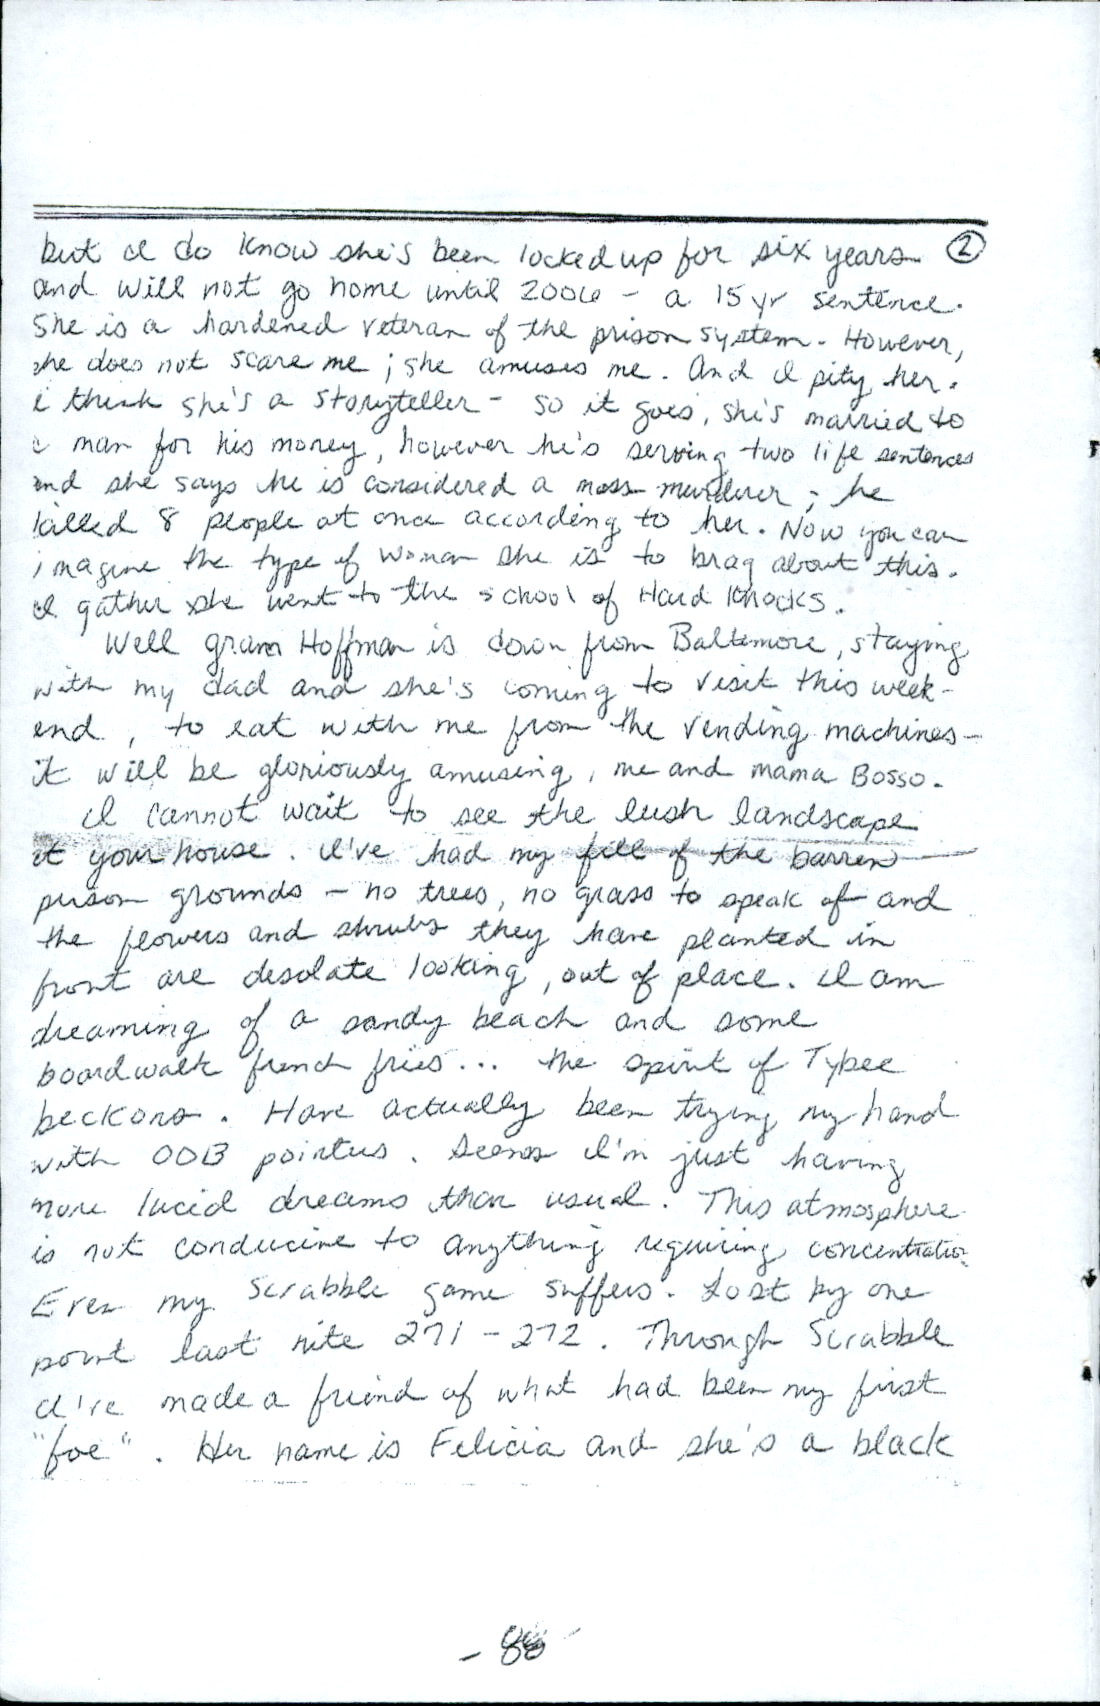 but I do know she's been locked up for six years ②
and will not go home until 2006 – a 15 yr sentence.
She is a hardened veteran of the prison system. However,
she does not scare me ; she amuses me. And I pity her.
I think she's a storyteller – so it goes, she's married to
a man for his money, however he's serving two life sentences
and she says he is considered a mass murderer ; he
killed 8 people at once according to her. Now you can
imagine the type of woman she is to brag about this.
I gather she went to the school of Hard Knocks.
Well gram Hoffman is down from Baltimore, staying
with my dad and she's coming to visit this week-
end, to eat with me from the vending machines –
it will be gloriously amusing, me and mama Bosso.
I cannot wait to see the lush landscape
at your house. I've had my fill of the barren
prison grounds – no trees, no grass to speak of and
the flowers and shrubs they have planted in
front are desolate looking, out of place. I am
dreaming of a sandy beach and some
boardwalk french fries... the spirit of Tybee
beckons. Have actually been trying my hand
with OOB pointers. Seems I'm just having
more lucid dreams than usual. This atmosphere
is not conducive to anything requiring concentration
Even my Scrabble game suffers. Lost by one
point last nite 271 – 272. Through Scrabble
I've made a friend of what had been my first
"foe". Her name is Felicia and she's a black
– 88 –